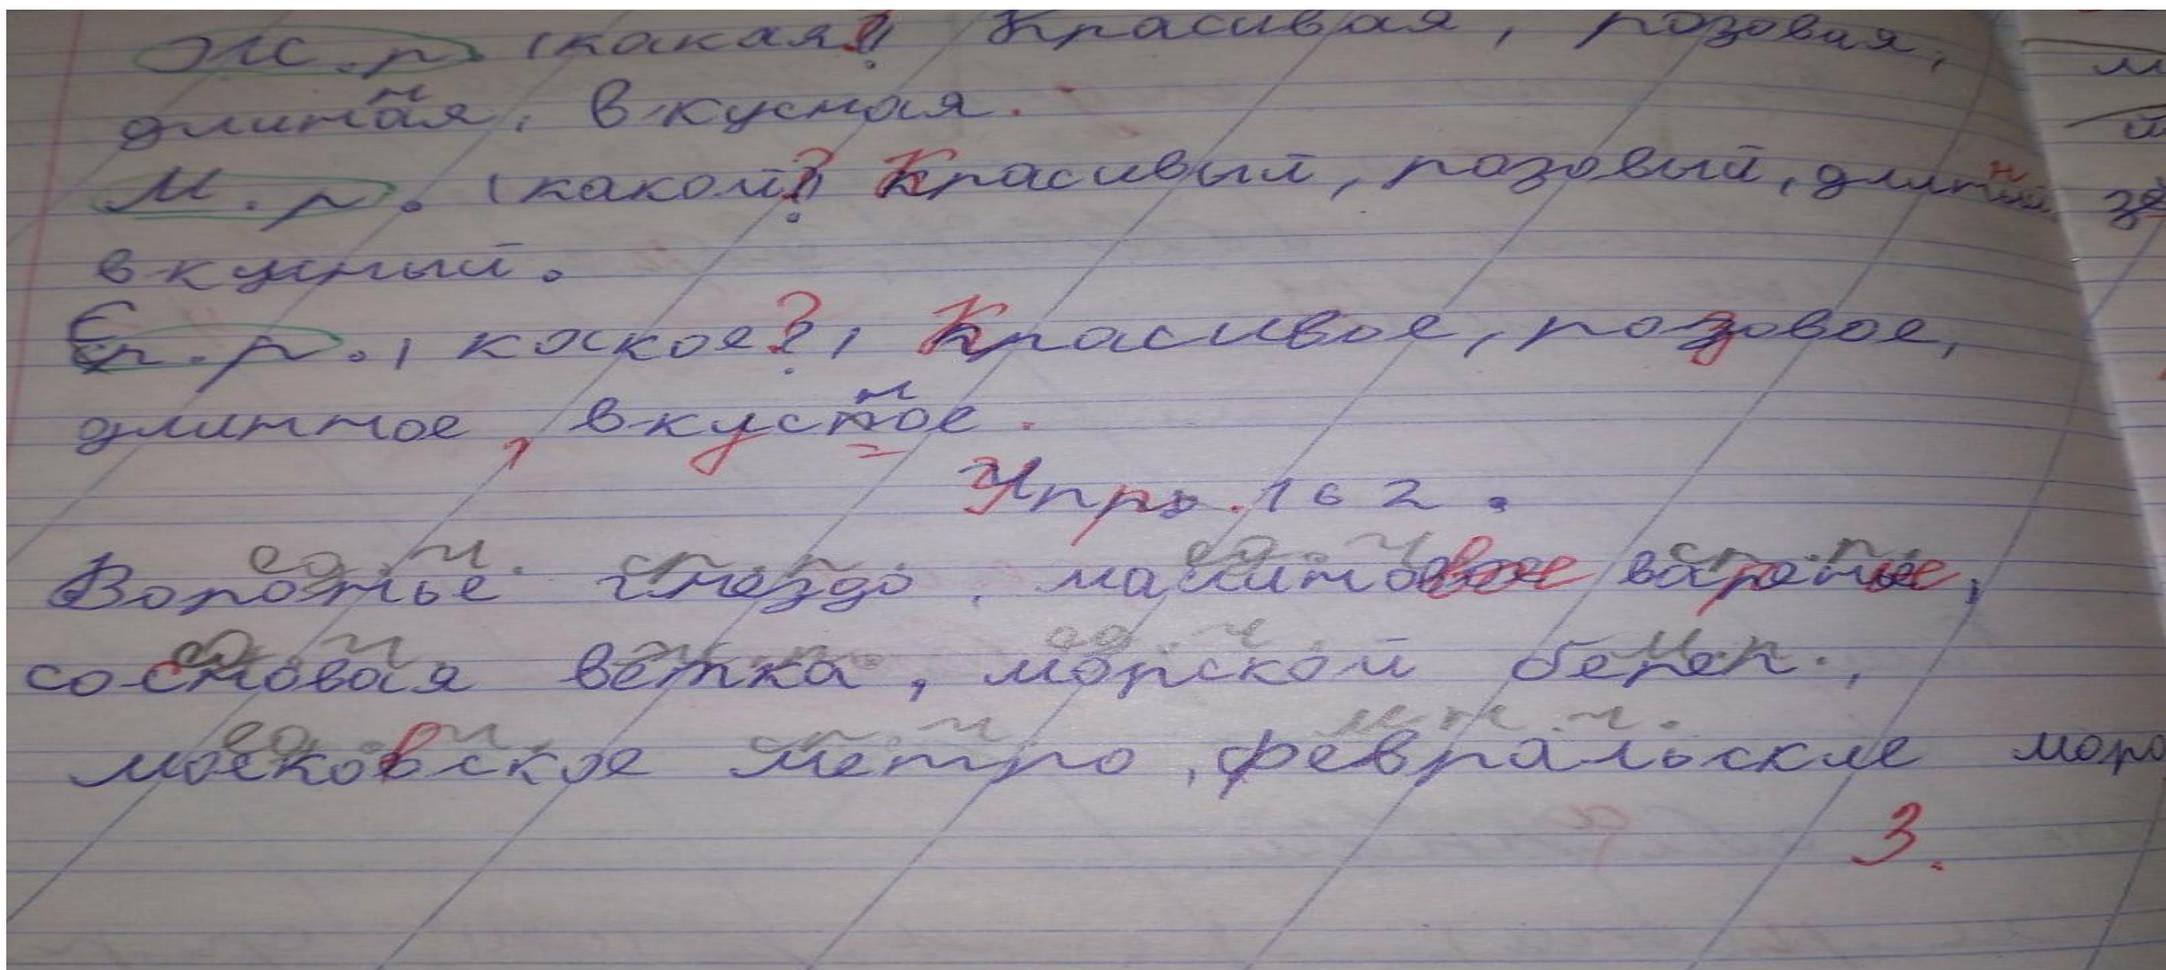 Ж.р. (какая?) Красивая, розовая,
длинная, вкусная.
М.р. (какой?) Красивый, розовый,
вкусный.
С.р. (какое?) Красивое, розовое,
длинное, вкусное.
Упр. 162.
ед.ч. ср.р. ед.ч. ср.р.
Воронье гнездо, малиновое варенье,
ед.ч. ж.р. ед.ч. м.р.
сосновая ветка, морской берег,
ед.ч. ср.р. мн.ч.
московское метро, февральские моро
3.